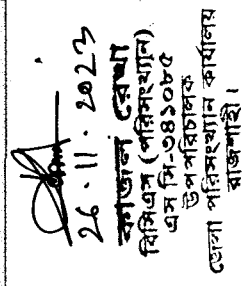 26.11.2023
কাজল রেখা
বিসিএস (পরিসংখ্যান)
এস সি-৩৪১০৮৫
উপপরিচালক
জেলা পরিসংখ্যান কার্যালয়
রাজশাহী।